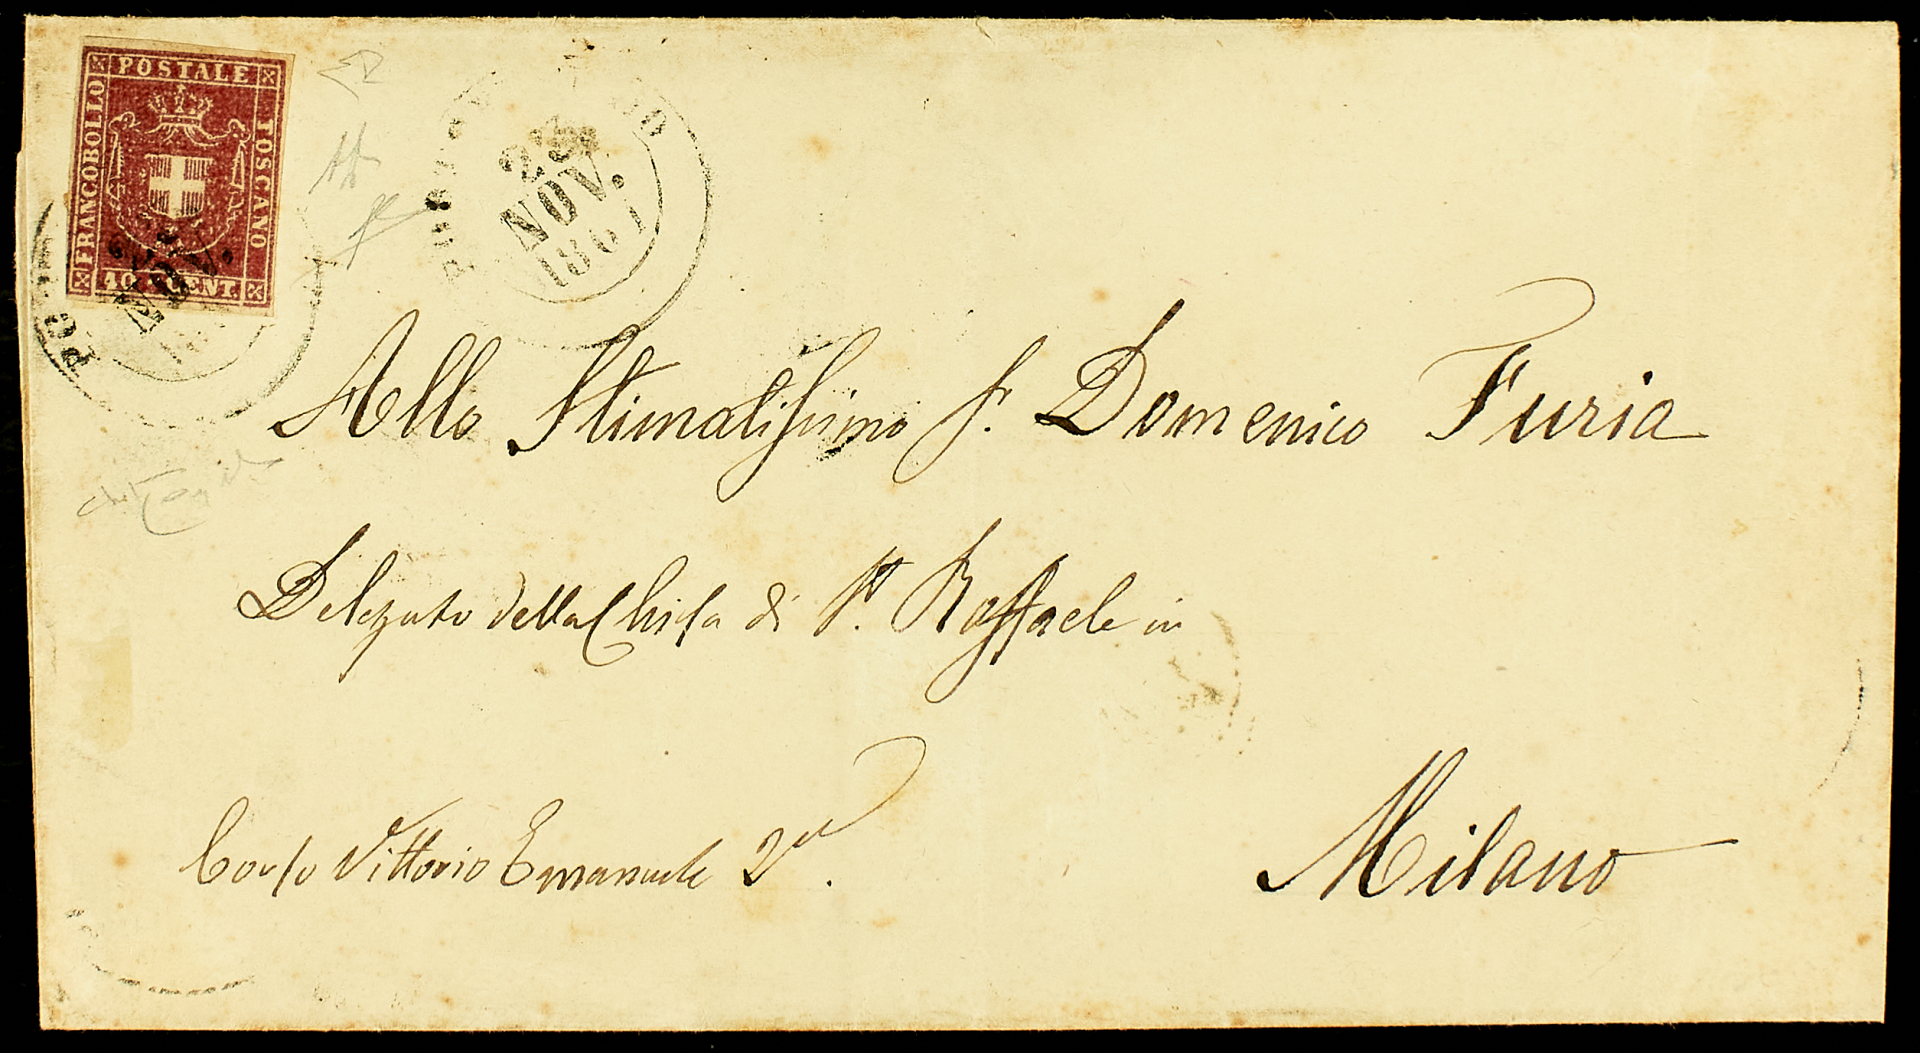 POSTALE
FRANCOBOLLO
TOSCANO
40 CENT.
NOV.
23
NOV.
1861
Allo Stimatissimo S. Domenico Furia
Delegato della Chiesa di St. Raffaele in
Corso Vittorio Emanuele 2do.
Milano